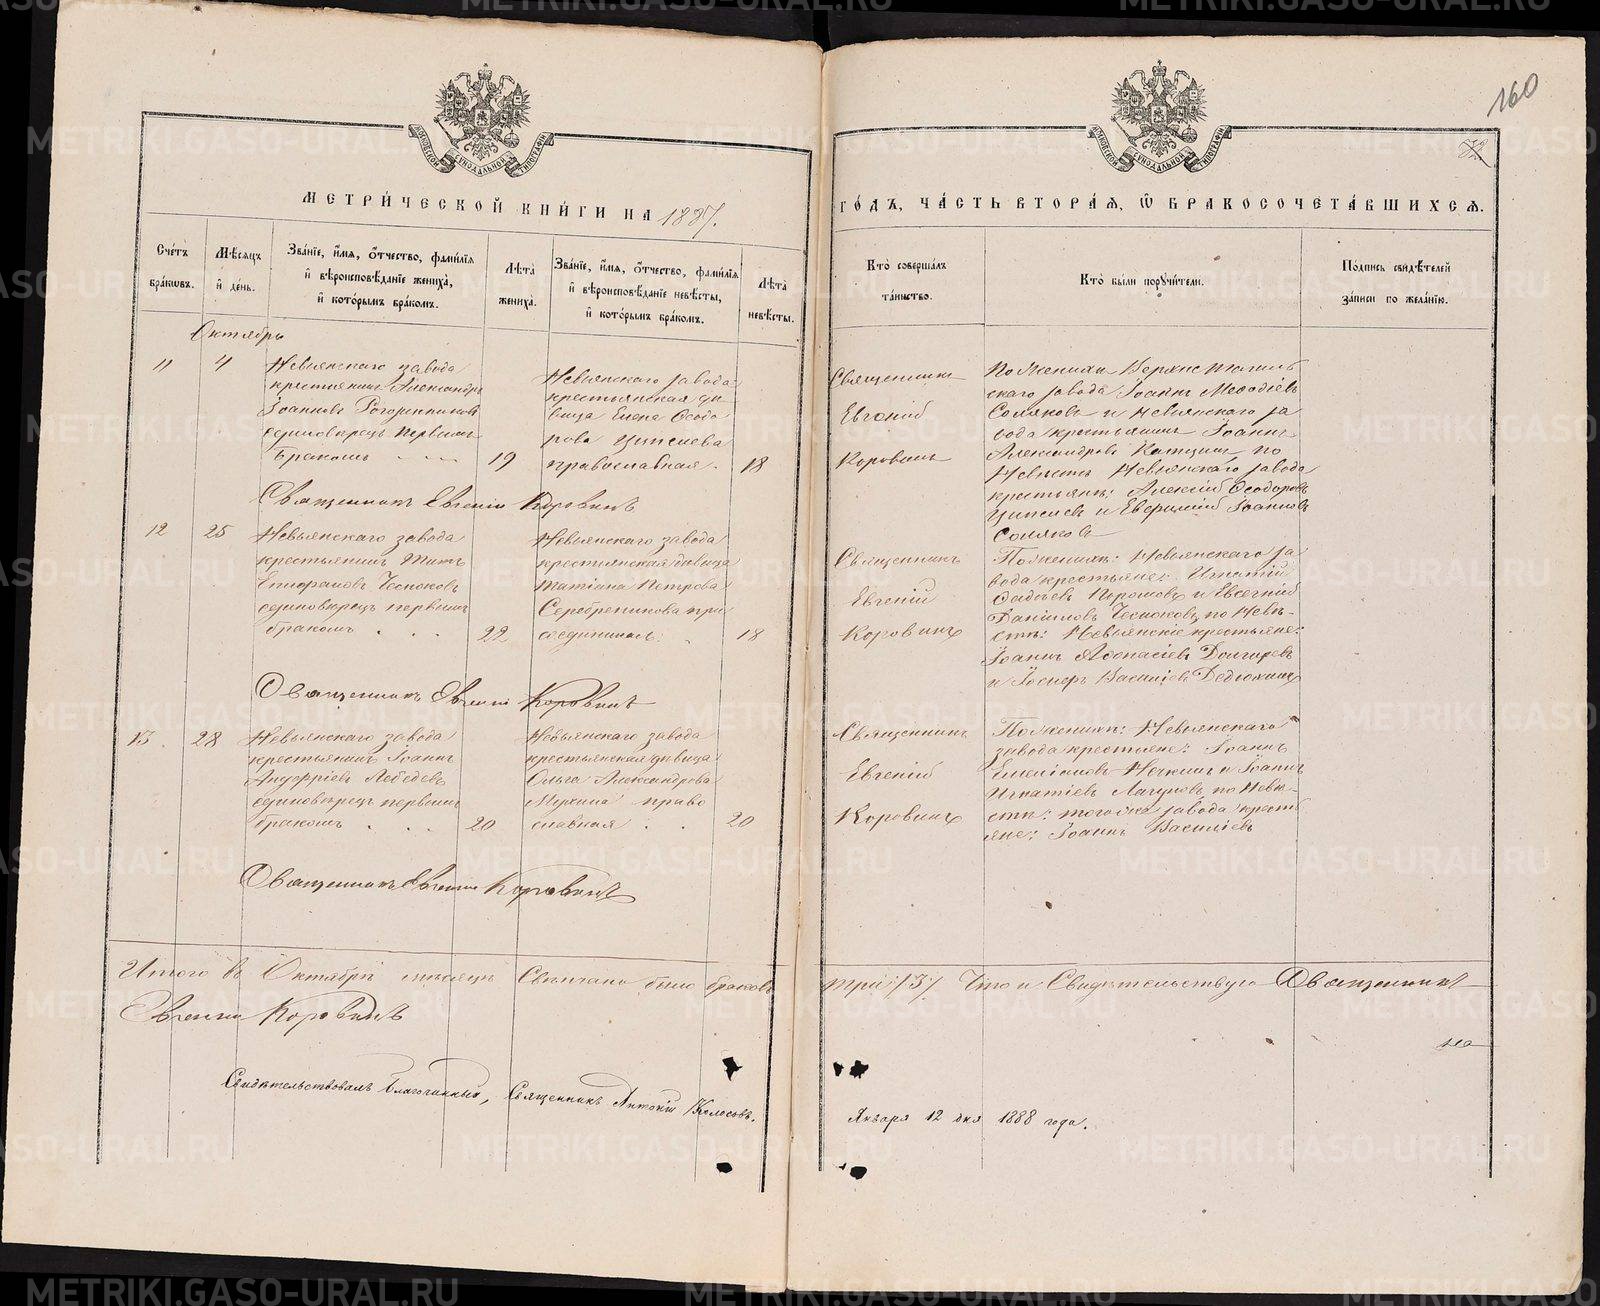 160
72
МЕТРИ́ЧЕСКОЙ КНИ́ГИ НА 1887. ГО́ДЪ, ЧА́СТЬ ВТОРА́Я, Ѽ БРАКОСОЧЕТА́ВШИХСЯ.
Сче́тъ бра́кѡвъ.
Мѣсяцъ и҆ де́нь.
Зва́нїе, и҆́мя, ѻ҆́тчество, фами́лїя и҆ вѣроисповѣ́данїе жениха̀, и҆ кото́рымъ бра́комъ.
Лѣта̀ жениха̀.
Зва́нїе, и҆́мя, ѻ҆́тчество, фами́лїя и҆ вѣроисповѣ́данїе невѣ́сты, и҆ кото́рымъ бра́комъ.
Лѣта̀ невѣ́сты.
Кто̀ соверша́лъ та́инство.
Кто̀ бы́ли порꙋчи́тели.
По́дпись свидѣ́телей за́писи по жела́нїю.
Октябрь
11
4
Невьянскаго завода
крестьянинъ Александръ
Іоанновъ
единовѣрецъ первымъ
бракомъ
19
Невьянскаго завода
крестьянская дѣ
вица Елена Ѳеодо
рова
православная
18
Священникъ
Евгеній
Коровинъ
По женихѣ Верхнетагиль
скаго завода Іоаннъ Меѳодіевъ
Соляковъ и Невьянскаго за
вода крестьянинъ Іоаннъ
Александровъ по
Невѣстѣ Невьянскаго завода
крестьяне: Алексій Ѳеодоровъ
и Іоанновъ
Соляковъ
Священникъ Евгеній Коровинъ
12
25
Невьянскаго завода
крестьянинъ Титъ
Чесноковъ
единовѣрецъ первымъ
бракомъ
22
Невьянскаго завода
крестьянская дѣвица
Татіана Петрова
Серебренникова при
соединенная
18
Священникъ
Евгеній
Коровинъ
По женихѣ: Невьянскаго за
вода крестьяне: Игнатій
и Евсегній
Чесноковъ, по Невѣ-
стѣ: Невьянскіе крестьяне:
Іоаннъ Аѳонасіевъ
и Іосифъ Василіевъ Дедюхинъ
Священникъ Евгеній Коровинъ
13
28
Невьянскаго завода
крестьянинъ Іоаннъ
Лебедевъ
единовѣрецъ первымъ
бракомъ
20
Невьянскаго завода
крестьянская дѣвица
Ольга Александрова
право
славная
20
Священникъ
Евгеній
Коровинъ
По женихѣ: Невьянскаго
завода крестьяне: Іоаннъ
и Іоаннъ
Игнатіевъ Лагуновъ, по Невѣ-
стѣ: того же завода крестья
яне: Іоаннъ Василіевъ
Священникъ Евгеній Коровинъ
Итого въ Октябрѣ мѣсяцѣ Свѣнчано было браковъ три /3/ Что и Свидѣтельствую Священникъ
Евгеній Коровинъ
Свидѣтельствовалъ Благочинный, Священникъ Антоній Колосовъ.
Января 12 дня 1888 года.
METRIKI.GASO-URAL.RU